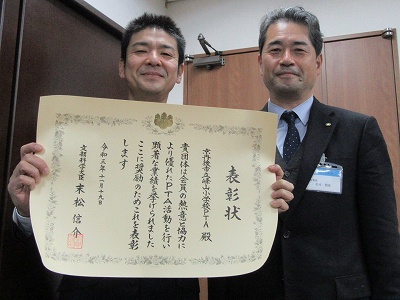 表彰状
京丹後市立峰山小学校PTA 殿
貴団体は会員の熱意と協力に
より優れたPTA活動を行い
顕著な業績を挙げられました
ここに奨励のためこれを表彰
します
令和三年十一月十九日
文部科学大臣 末松信介